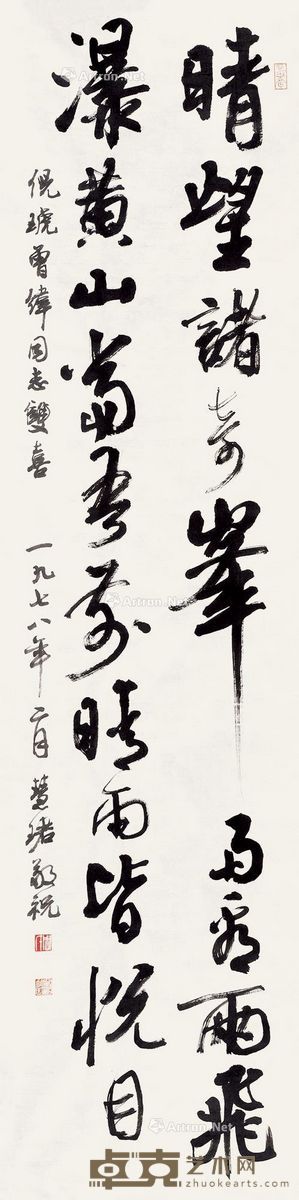 晴望諸奇峯 雨看兩飛
瀑黃山當吾前晴雨皆悅目
倪琥曾緯同志雙喜 一九七八年二月 慧珺敬祝
Artron.Net
卓克艺术网
www.zhuokearts.com